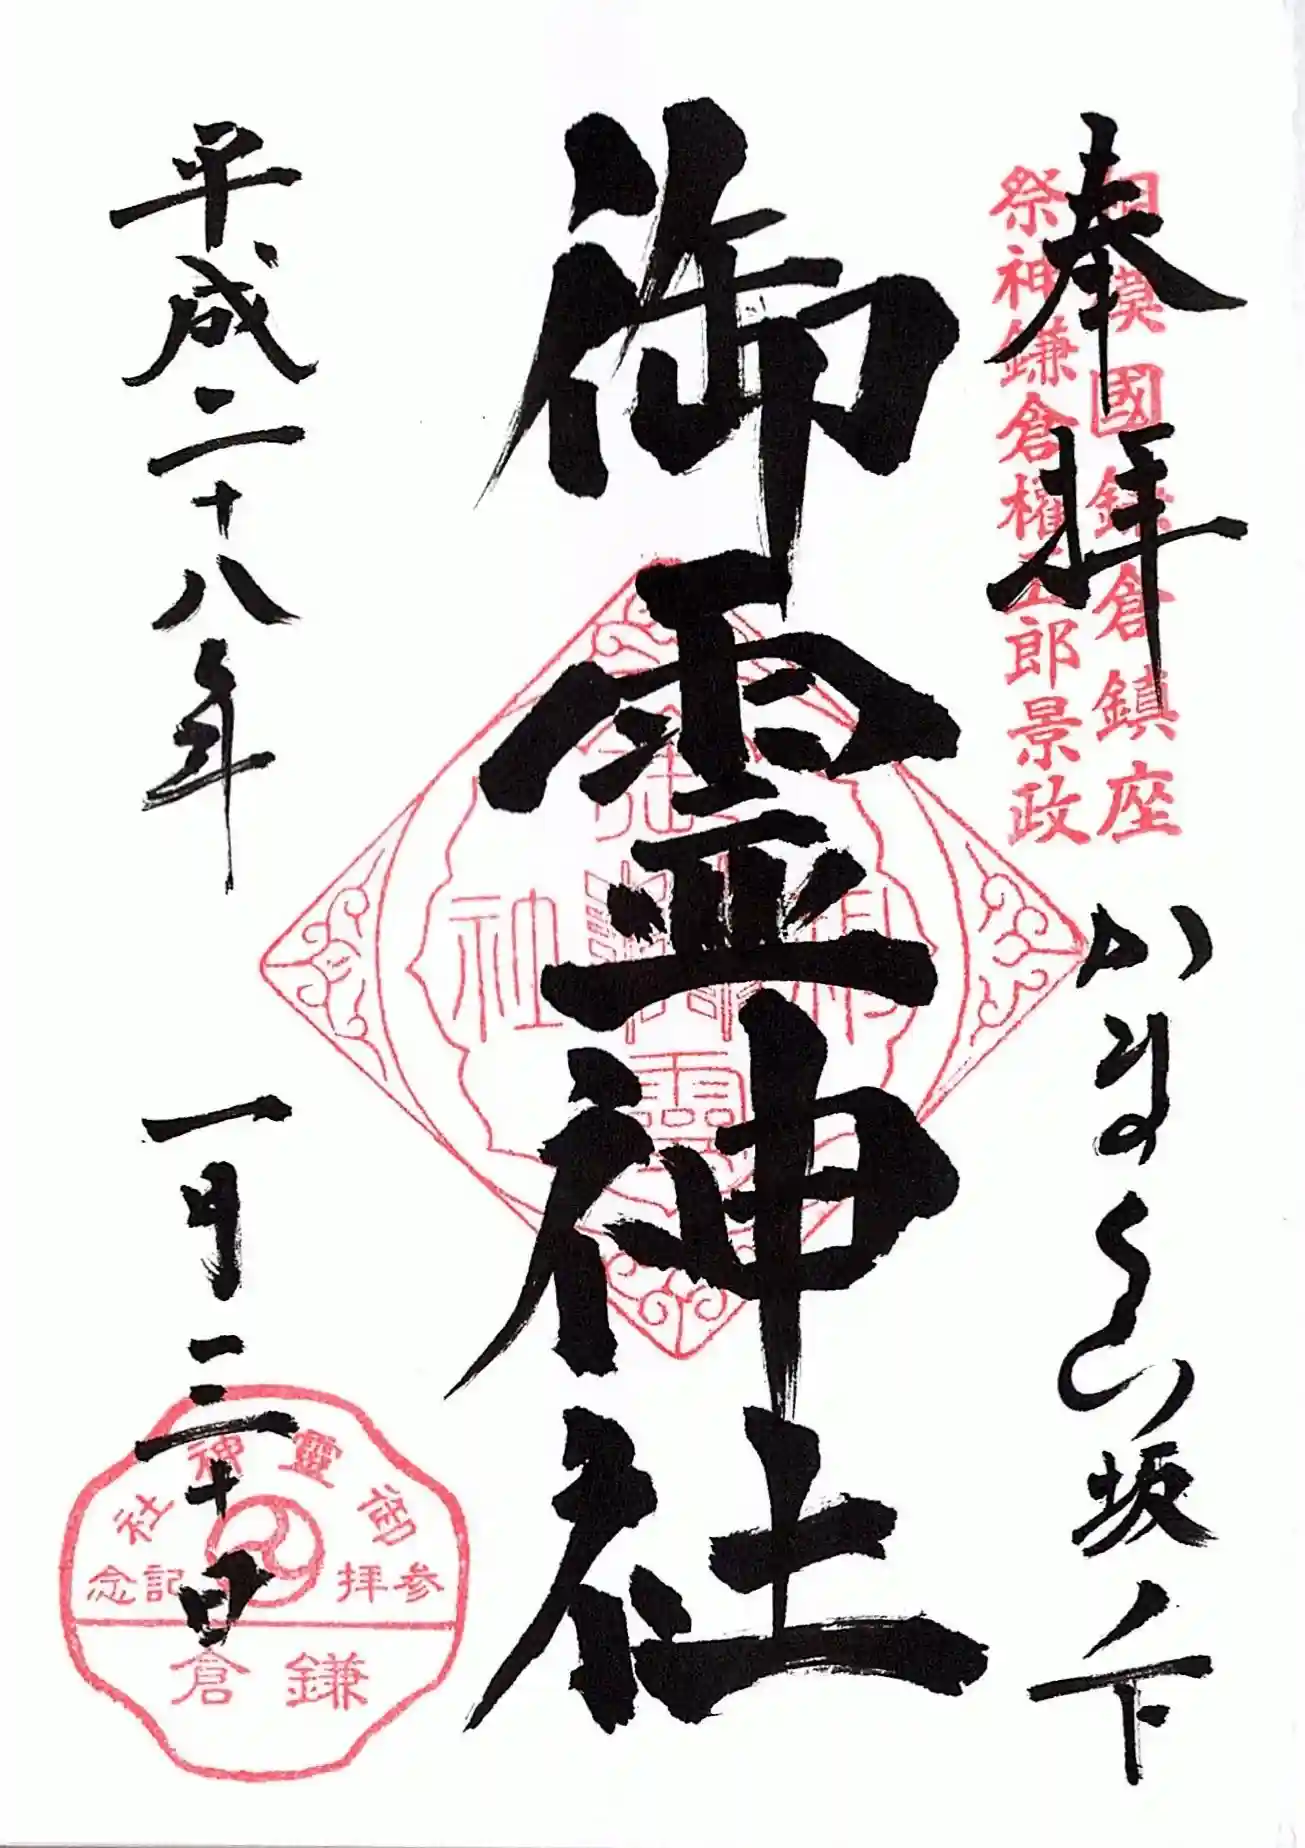 奉拝
かまくら坂ノ下
相模國鎌倉鎮座
祭神鎌倉権五郎景政
御霊神社
平成二十八年
一月三十日
御霊神社
参拝記念
鎌倉